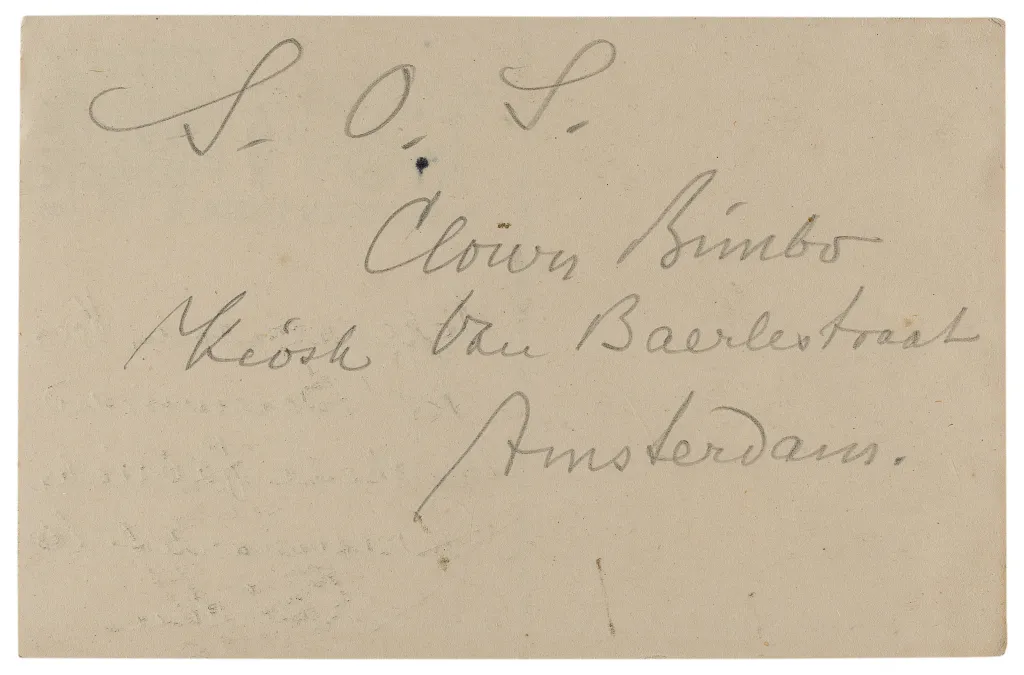 S. O. S.
Clown Bimbo
Kiosk Van Baerlestraat
Amsterdam.